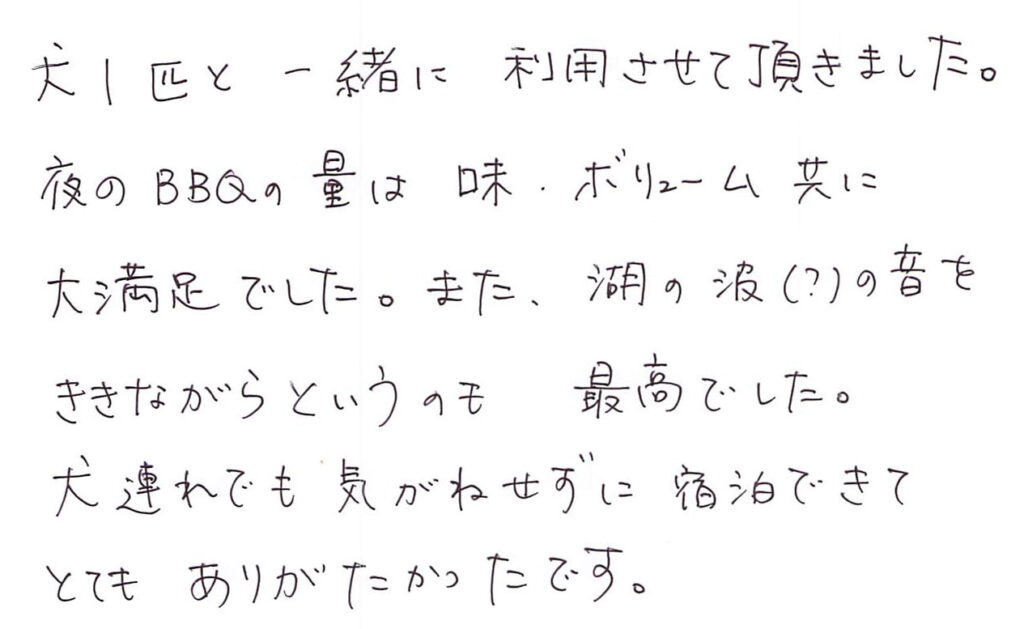 犬1匹と一緒に利用させて頂きました。
夜のBBQの量は味・ボリューム共に
大満足でした。また、湖の波(?)の音を
ききながらというのも最高でした。
犬連れでも気がねせずに宿泊できて
とてもありがたかったです。